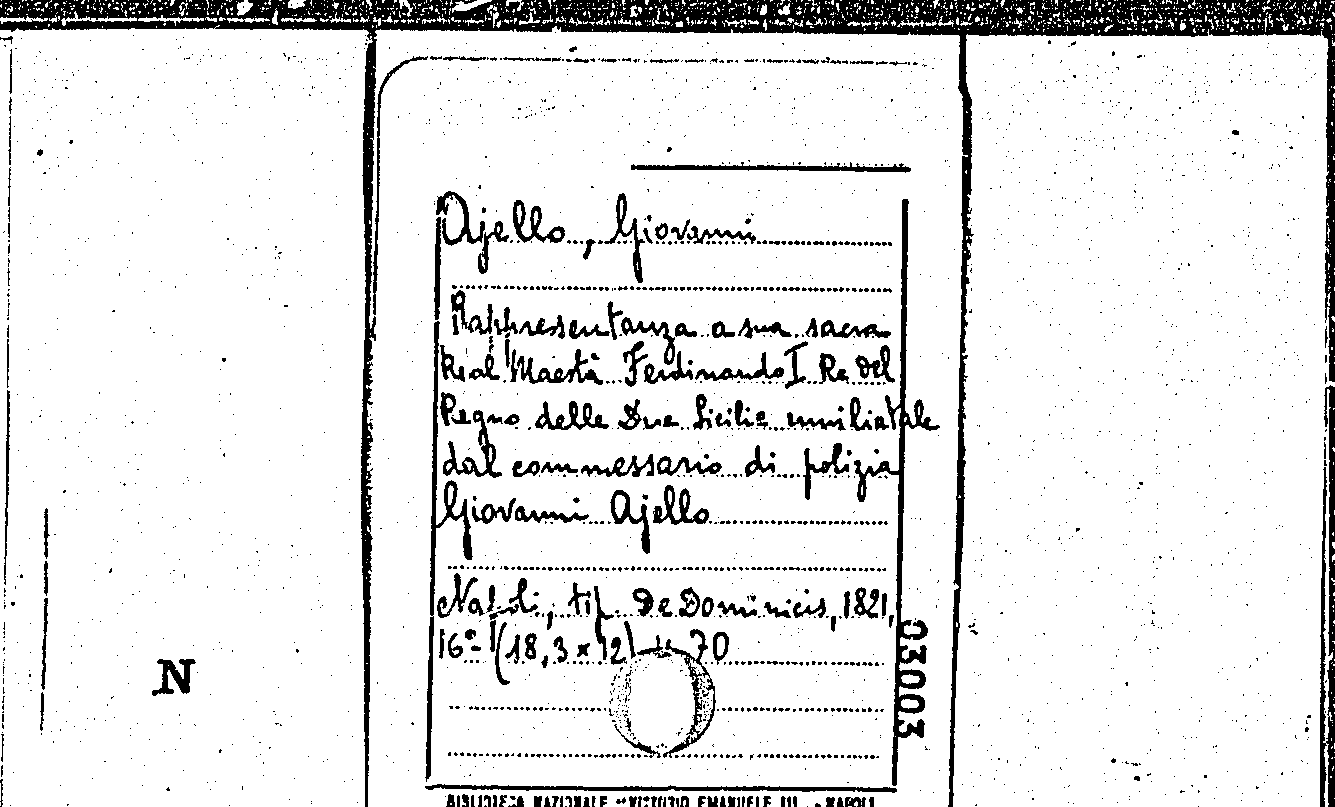 Ajello, Giovanni
Rappresentanza a sua sacra
Real Maestà Ferdinando I Re del
Regno delle Due Sicilie umiliatale
dal commessario di polizia
Giovanni Ajello
Napoli, tip. De Dominicis, 1821,
16º (18,3 x 12) 70
03003
N
BIBLIOTECA NAZIONALE "VITTORIO EMANUELE III" - NAPOLI